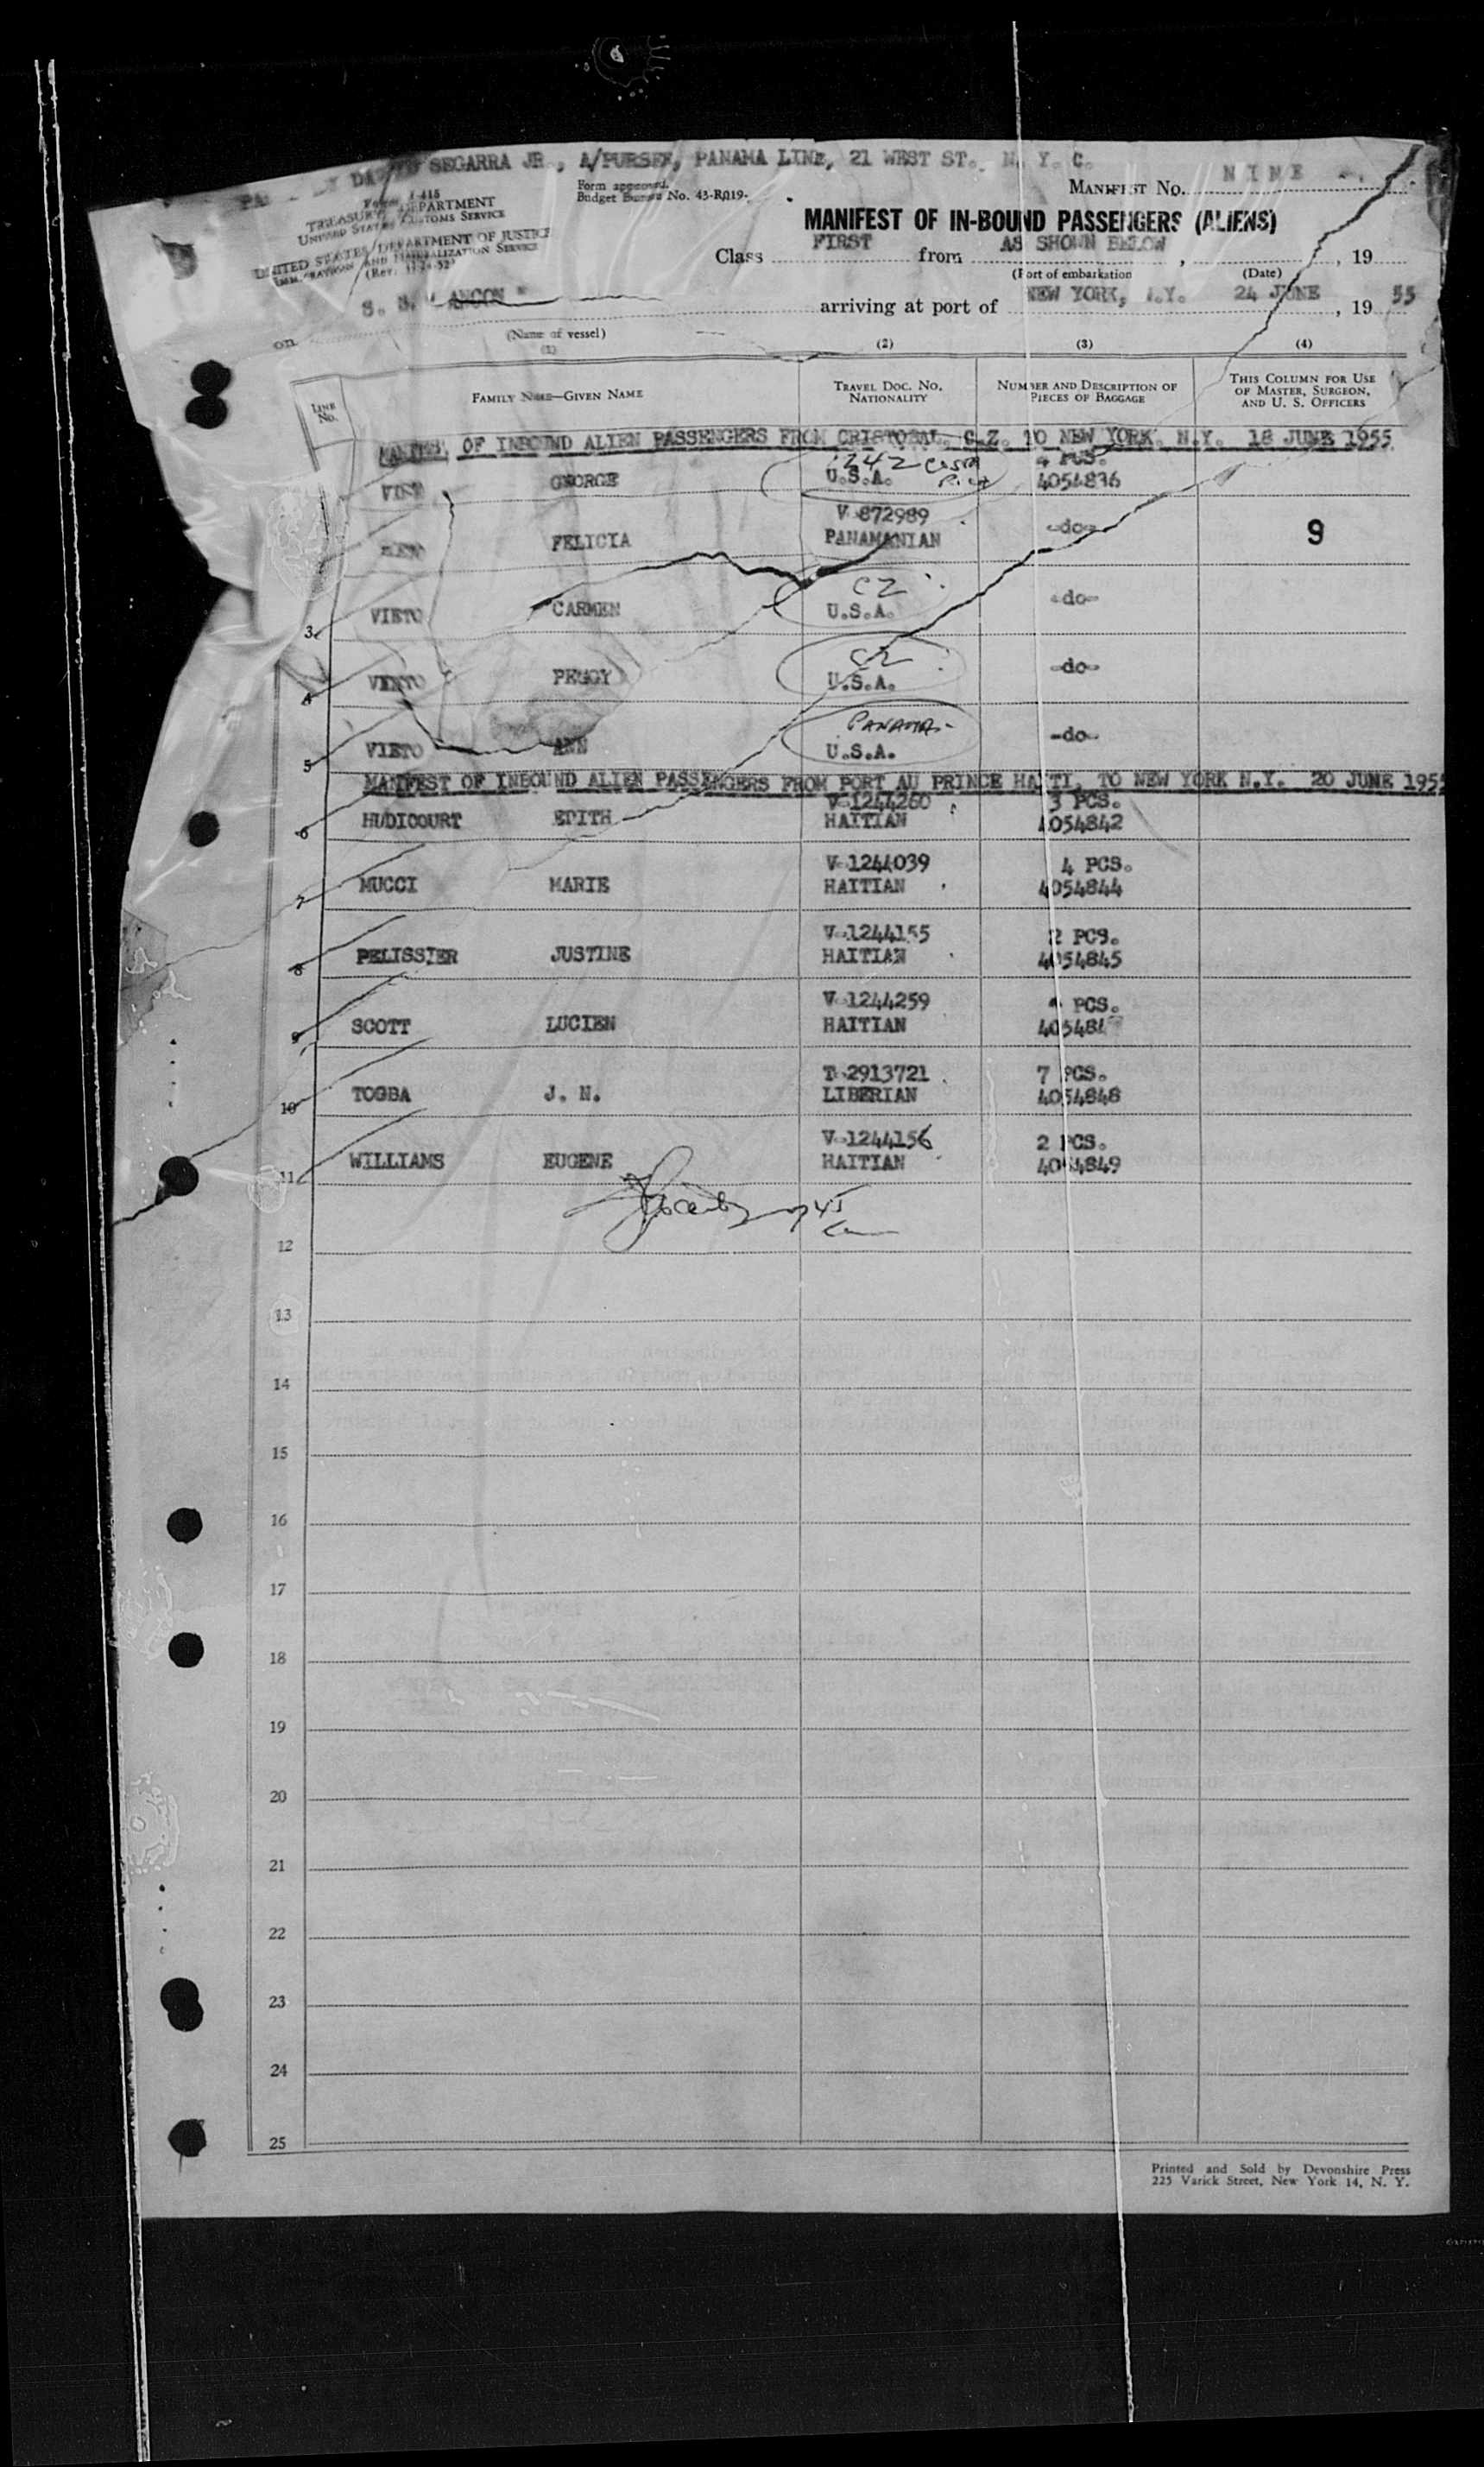 SEGARRA JR., A/PURSER, PANAMA LINE, 21 WEST ST. N. Y. C.
Form I-415
TREASURY DEPARTMENT
UNITED STATES CUSTOMS SERVICE
UNITED STATES DEPARTMENT OF JUSTICE
IMMIGRATION AND NATURALIZATION SERVICE
Form approved.
Budget Bureau No. 43-R019.
MANIFEST NO. NINE
MANIFEST OF IN-BOUND PASSENGERS (ALIENS)
Class FIRST from AS SHOWN BELOW, , 19
(Port of embarkation (Date)
on S. S. " ANCON " arriving at port of NEW YORK, N.Y. 24 JUNE, 19 55
(Name of vessel)
(1) (2) (3) (4)
LINE NO. FAMILY NAME—GIVEN NAME TRAVEL DOC. NO. NATIONALITY NUMBER AND DESCRIPTION OF PIECES OF BAGGAGE THIS COLUMN FOR USE OF MASTER, SURGEON, AND U. S. OFFICERS
OF INBOUND ALIEN PASSENGERS FROM CRISTOBAL, C.Z. TO NEW YORK, N.Y. 18 JUNE 1955
242 4 PCS.
GEORGE U.S.A. 4054836
V-872989
FELICIA PANAMANIAN -do- 9
CZ
3 VIETO CARMEN U.S.A. -do-
CZ
4 VIETO PEGGY U.S.A. -do-
PANAMA-
5 VIETO ANN U.S.A. -do-
MANIFEST OF INBOUND ALIEN PASSENGERS FROM PORT AU PRINCE HAITI, TO NEW YORK N.Y. 20 JUNE 1955
V-1244260 3 PCS.
6 HUDICOURT EDITH HAITIAN 4054842
V-1244039 4 PCS.
7 MUCCI MARIE HAITIAN 4054844
V-1244155 2 PCS.
8 PELISSIER JUSTINE HAITIAN 4054845
V-1244259 PCS.
9 SCOTT LUCIEN HAITIAN
T-2913721 7 PCS.
10 TOGBA J. N. LIBERIAN 4054848
V-1244156 2 PCS.
11 WILLIAMS EUGENE HAITIAN 4054849
12
13
14
15
16
17
18
19
20
21
22
23
24
25
Printed and Sold by Devonshire Press
225 Varick Street, New York 14, N. Y.